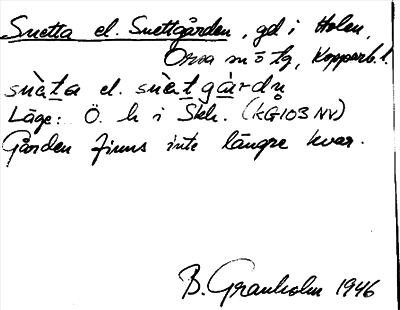 Snetta el. Snettgården, gd i Holen,
Orsa sn o tg, Kopparb. l.
snèta el. snètgàrdn̥
Läge: Ö. h i Skh. (KG103 NV)
Gården finns inte längre kvar.
B. Granholm 1946